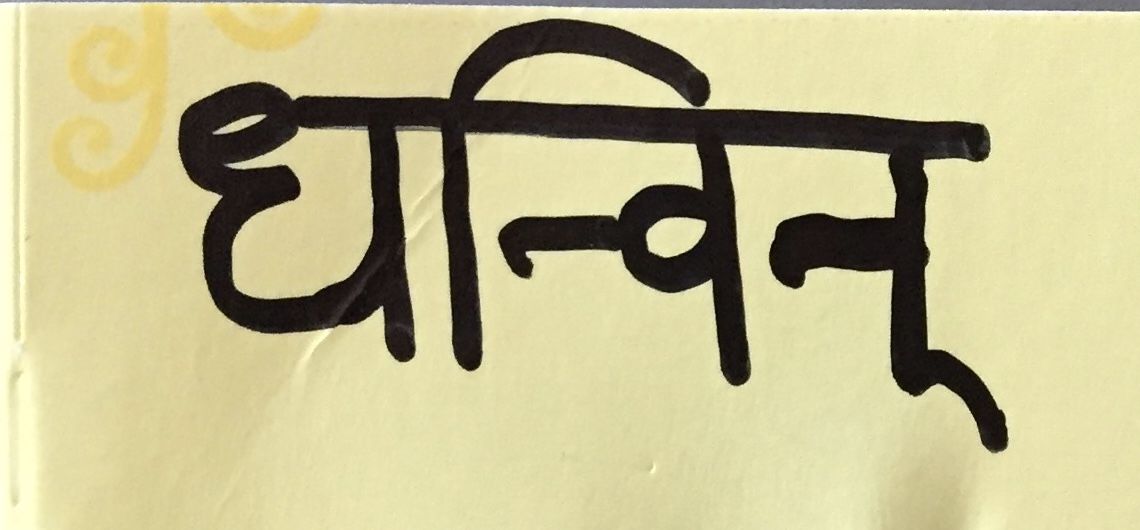 धन्विन्